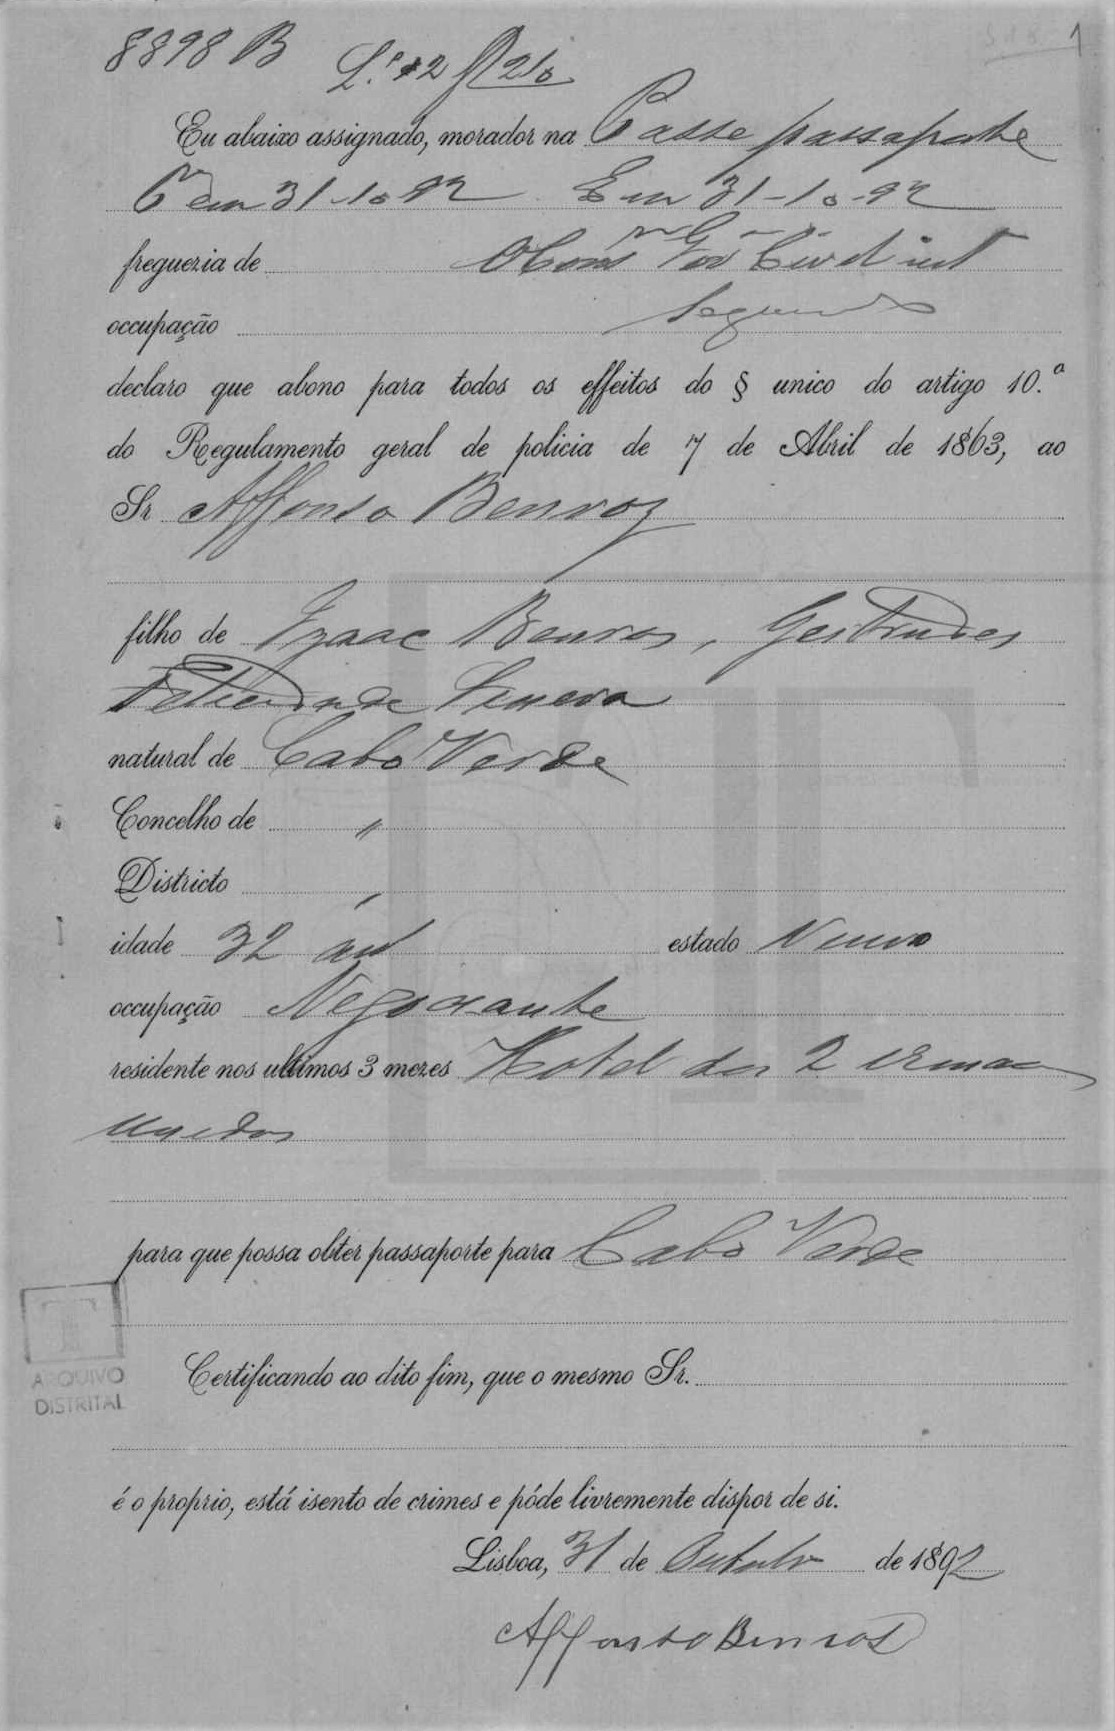 8898 B
L.º 12 f 216
Eu abaixo assignado, morador na Passe passaporte
em 31-10-92 Em 31-10-92
freguezia de
occupação
declaro que abono para todos os effeitos do § unico do artigo 10.º
do Regulamento geral de policia de 7 de Abril de 1863, ao
Sr Affonso Benroz
filho de Izaac Benros, Gertrudes
natural de Cabo Verde
Concelho de "
Districto "
idade 32 an estado
occupação Negociante
residente nos ultimos 3 mezes Hotel dos 2 irmaos
Unidos
para que possa obter passaporte para Cabo Verde
Certificando ao dito fim, que o mesmo Sr.
é o proprio, está isento de crimes e póde livremente dispor de si.
Lisboa, 31 de Outubro de 1892
Affonso Benros
ARQUIVO
DISTRITAL